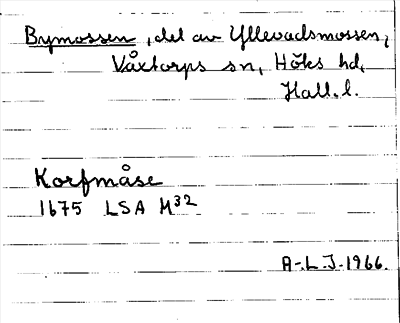 Bymossen, del av Yllevadsmossen,
Våxtorps sn, Höks hd,
Hall. l.
Korfmåse
1675 LSA M32
A-L.J-1966.